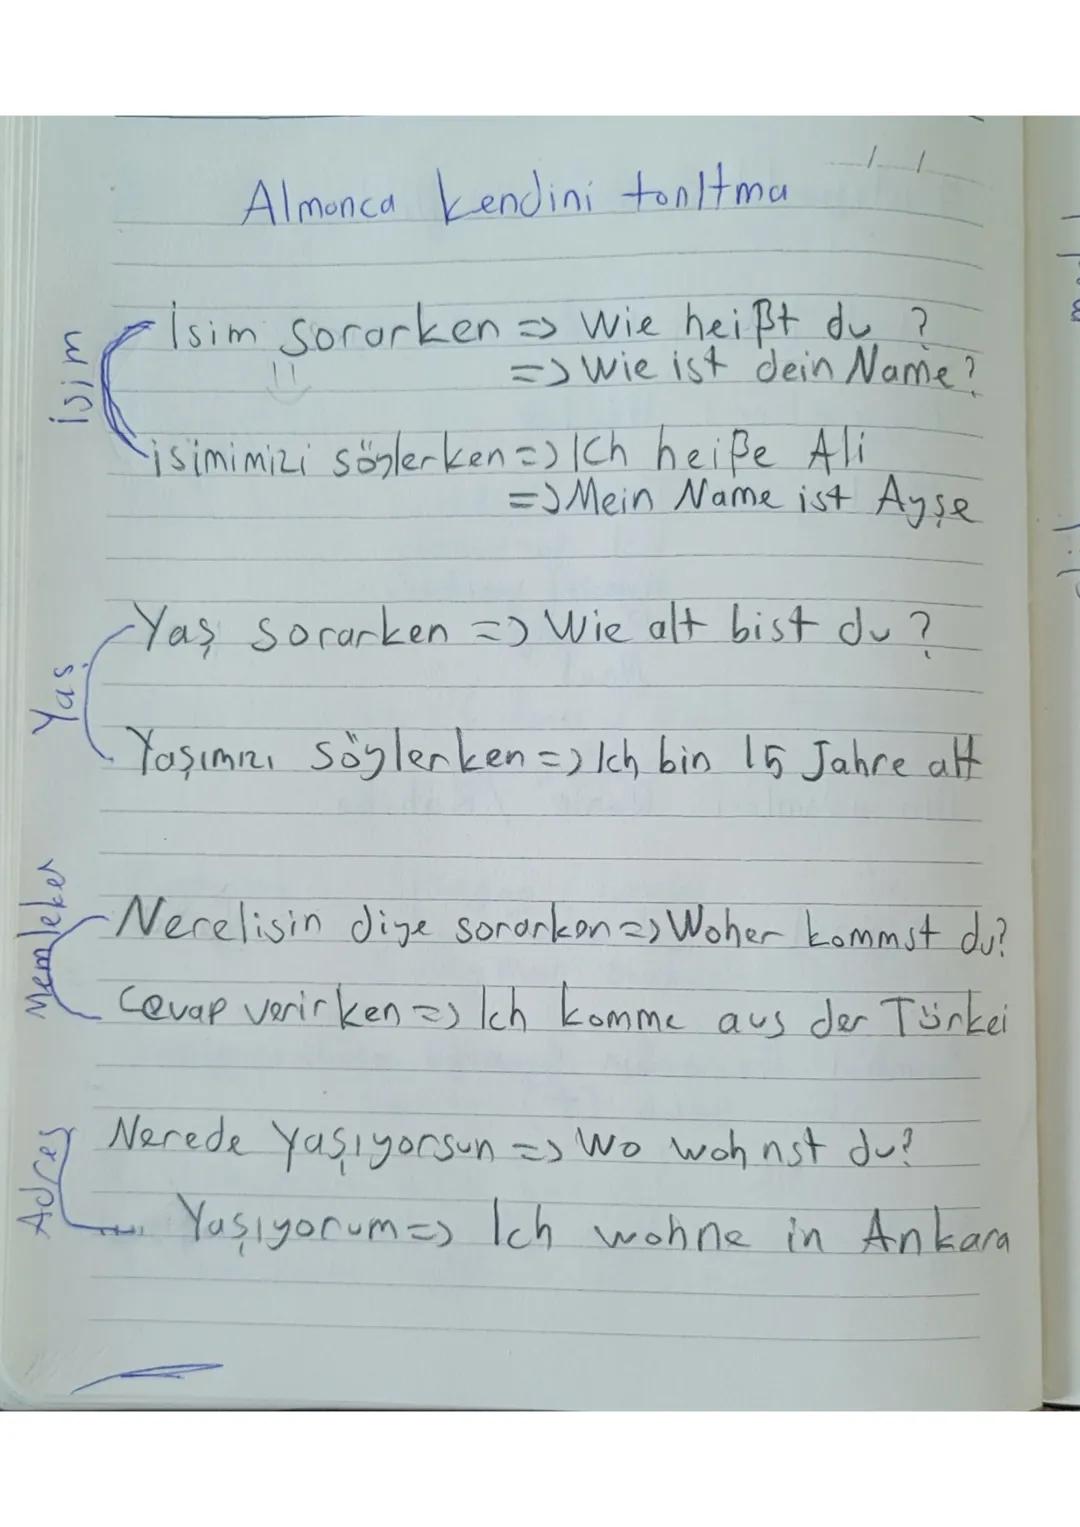 Almanca kendini tanıtma
İsim
İsim sorarken => Wie heißt du ?
=> Wie ist dein Name?
isimimizi söylerken => Ich heiße Ali
=> Mein Name ist Ayşe
Yaş
Yaş sorarken => Wie alt bist du ?
Yaşımızı söylerken => Ich bin 15 Jahre alt
Memleket
Nerelisin diye sorarken => Woher kommst du?
Cevap verirken => Ich komme aus der Türkei
Adres
Nerede Yaşıyorsun => Wo wohnst du?
Yaşıyorum => Ich wohne in Ankara